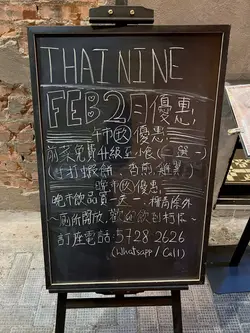 THAI NINE
FEB 2月優惠,
午市㊙優惠:
前菜免費升級至小食(三選一)
打蝦餅、香煎雞翼
晚市㊙優惠:
晚市飲品買一送一,樽裝除外
~廁所開放,歡迎飲到
訂座電話:5728 2626
(Whatsapp / Call)